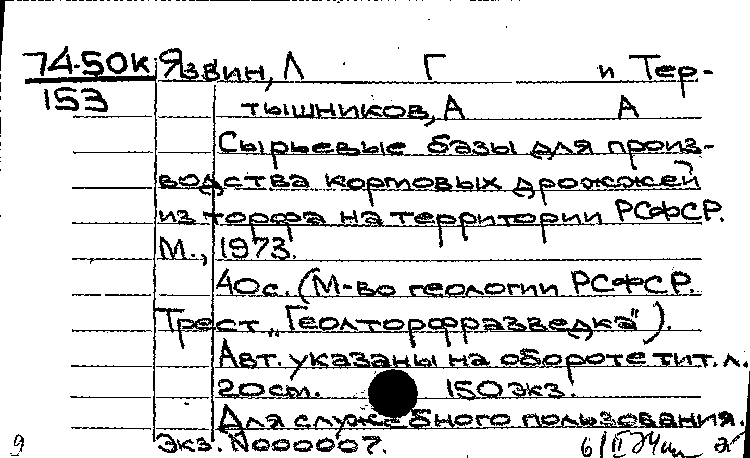 74-50К Язвин, Л Г и Тер-
153 тышников, А А
Сырьевые базы для произ-
водства кормовых дрожжей
из торфа на территории РСФСР.
М., 1973.
40с. (М-во геологии РСФСР.
Трест „Геолторфразведка").
Авт. указаны на обороте тит. л.
20см. 150 экз.
Для служебного пользования.
9 Экз. N000007.